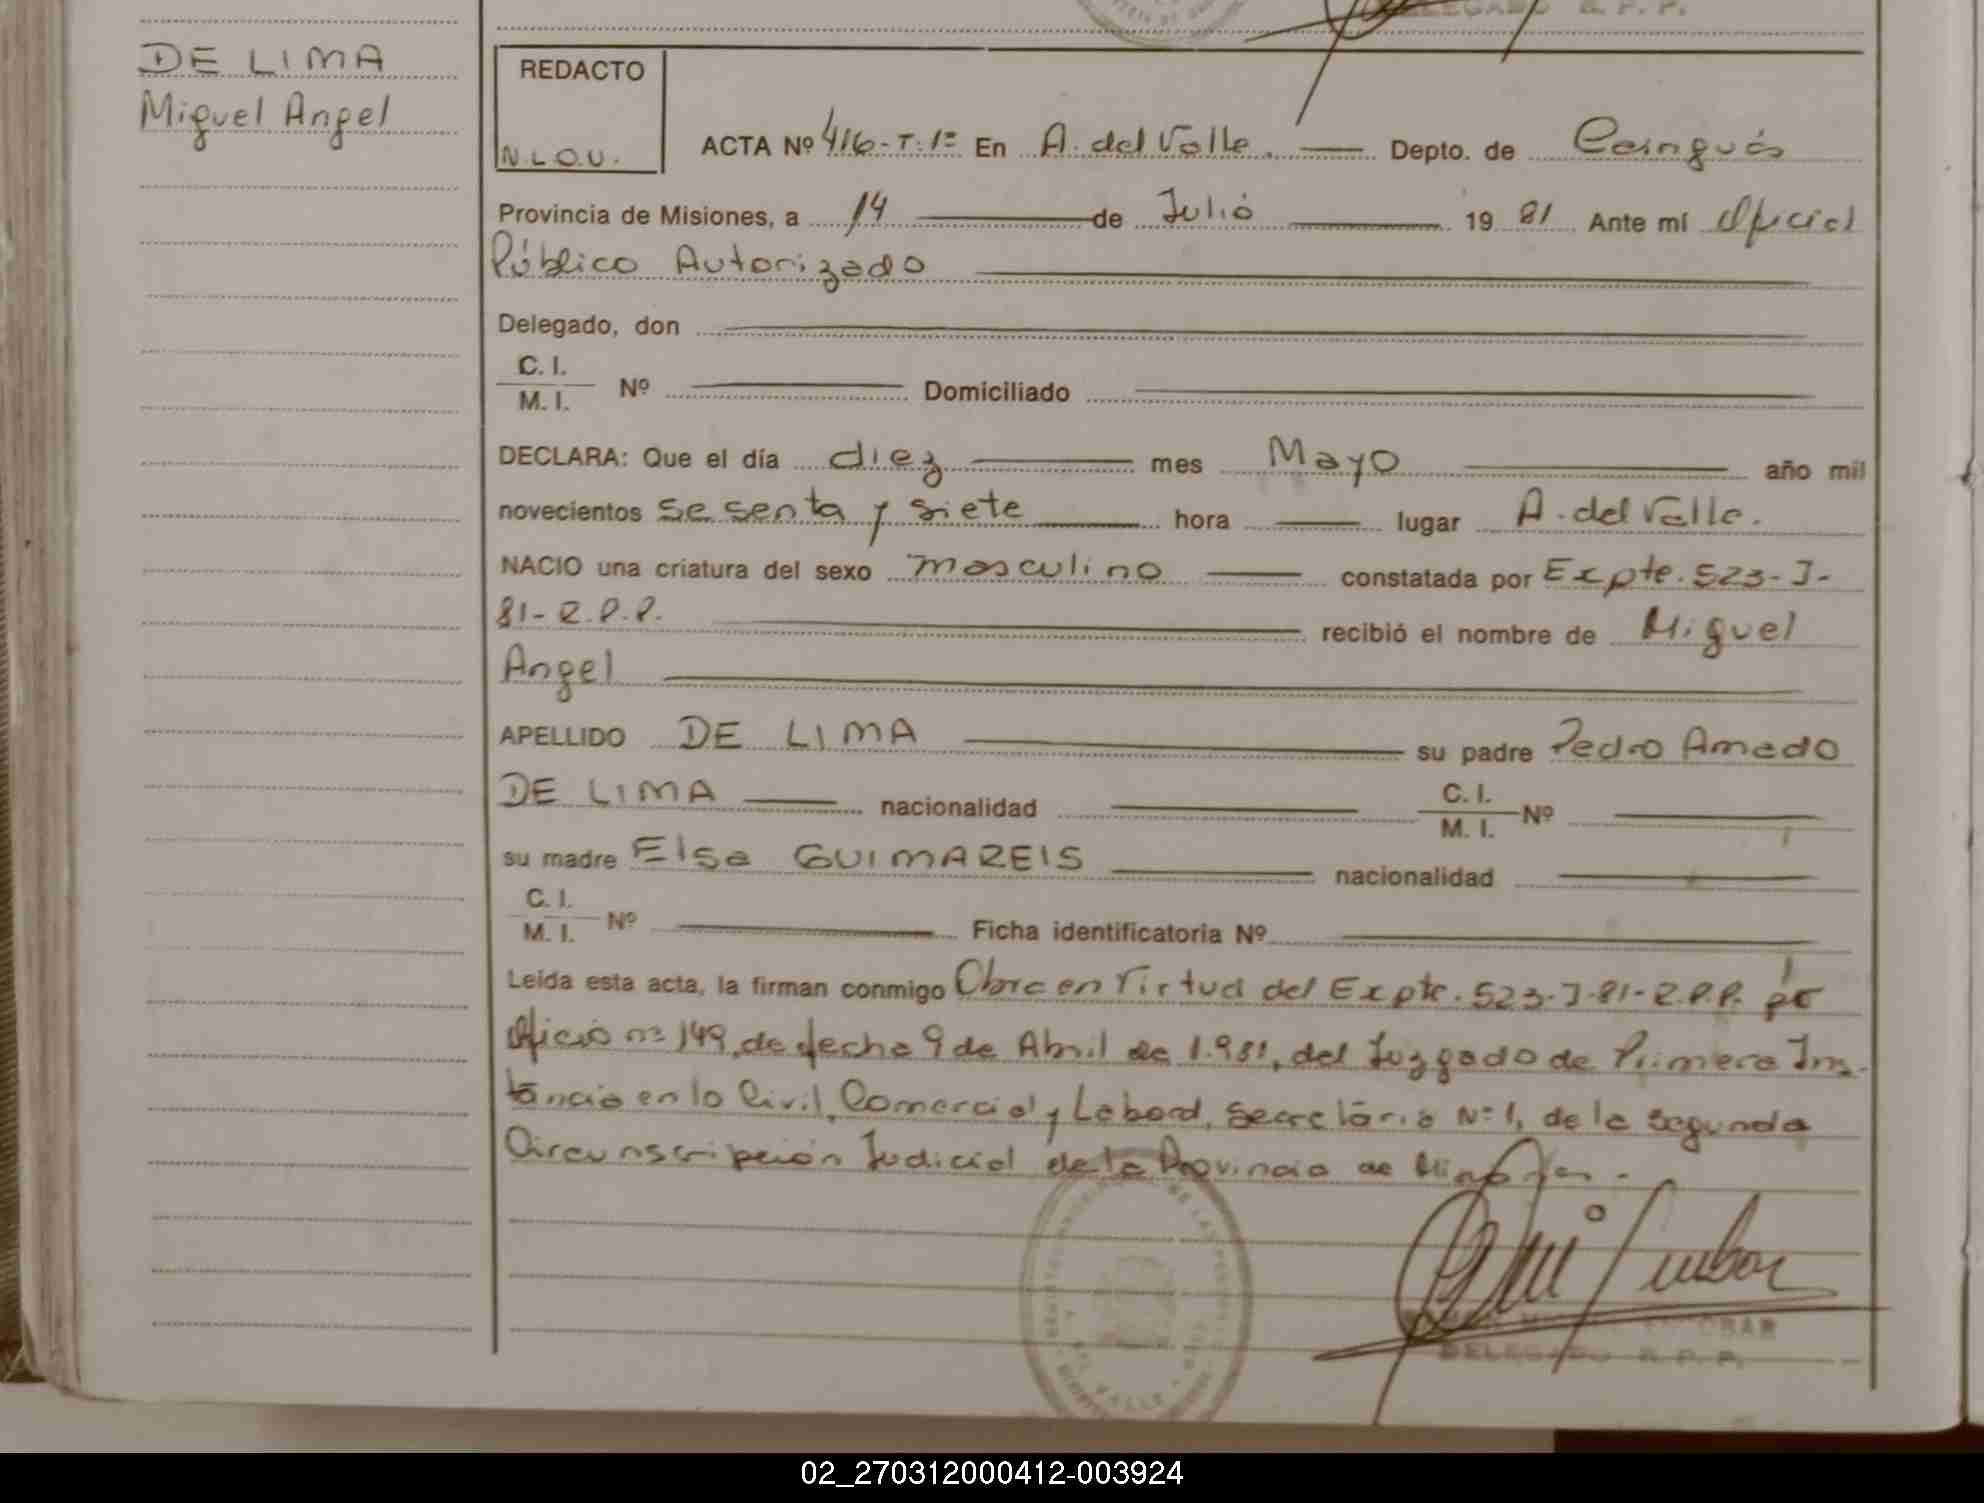 DELEGADO R. P. P.
DE LIMA
Miguel Angel
REDACTO
N.L.O.U.
ACTA Nº 416-T.1º En A. del Valle. Depto. de Cainguás
Provincia de Misiones, a 14 de Julio 19 81 Ante mí Oficial
Público Autorizado
Delegado, don
C. I.
M. I. Nº Domiciliado
DECLARA: Que el día diez mes Mayo año mil
novecientos sesenta y siete hora lugar A. del Valle.
NACIO una criatura del sexo masculino constatada por Expte. 523-J-
81-R.P.P. recibió el nombre de Miguel
Angel
APELLIDO DE LIMA su padre Pedro Amado
DE LIMA nacionalidad C. I.
M. I. Nº
su madre Elsa GUIMAREIS nacionalidad
C. I.
M. I. Nº Ficha identificatoria Nº
Leída esta acta, la firman conmigo Obra en Virtud del Expte. 523-J-81-R.P.P. por
Oficio nº 149, de fecha 9 de Abril de 1.981, del Juzgado de Primera Ins-
tancia en lo Civil, Comercial y Laboral, Secretária Nº 1, de la Segunda
Circunscripción Judicial de la Provincia de Misiones.-
DELEGADO R. P. P.
02_270312000412-003924